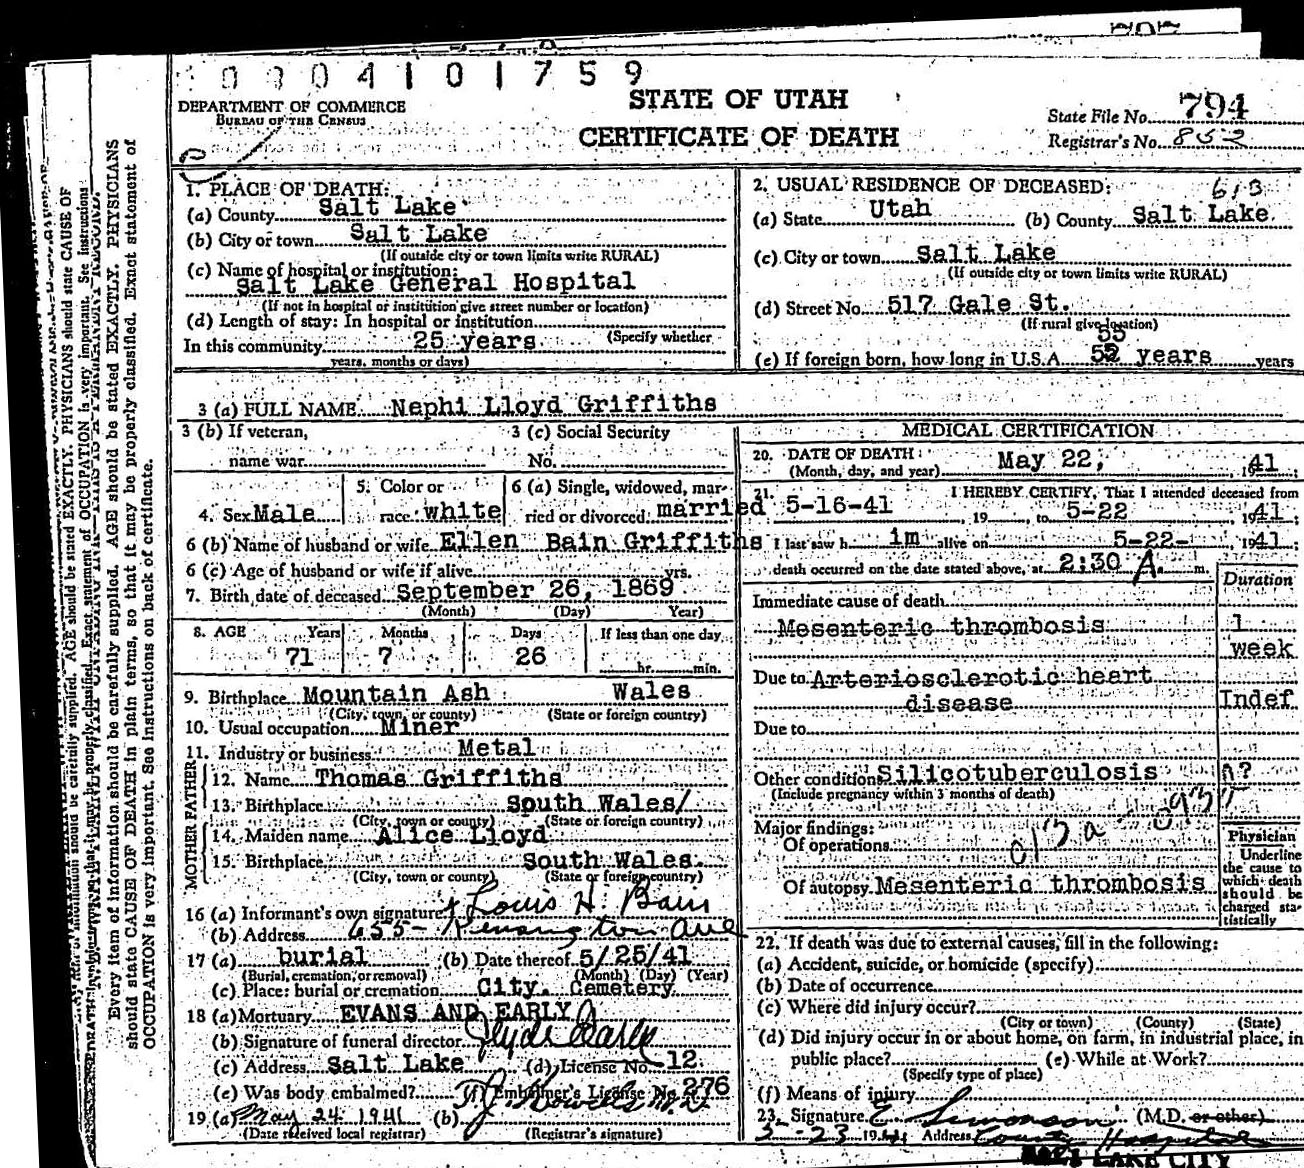 0004101759
DEPARTMENT OF COMMERCE
BUREAU OF THE CENSUS
STATE OF UTAH
CERTIFICATE OF DEATH
State File No. 794
Registrar's No. 852
Every item of information should be carefully supplied. AGE should be stated EXACTLY. PHYSICIANS
should state CAUSE OF DEATH in plain terms, so that it may be properly classified. Exact statement of
OCCUPATION is very important. See instructions on back of certificate.
1. PLACE OF DEATH:
(a) County Salt Lake
(b) City or town Salt Lake
(If outside city or town limits write RURAL)
(c) Name of hospital or institution:
Salt Lake General Hospital
(If not in hospital or institution give street number or location)
(d) Length of stay: In hospital or institution
(Specify whether
In this community 25 years
years, months or days)
2. USUAL RESIDENCE OF DECEASED: 613
(a) State Utah (b) County Salt Lake
(c) City or town Salt Lake
(If outside city or town limits write RURAL)
(d) Street No. 517 Gale St.
(If rural give location)
55
(e) If foreign born, how long in U.S.A. 52 years years
3 (a) FULL NAME Nephi Lloyd Griffiths
3 (b) If veteran,
name war
3 (c) Social Security
No.
4. Sex Male
5. Color or
race white
6 (a) Single, widowed, mar-
ried or divorced married
6 (b) Name of husband or wife Ellen Bain Griffiths
6 (c) Age of husband or wife if alive yrs.
7. Birth date of deceased September 26, 1869
(Month) (Day) Year)
8. AGE Years Months Days If less than one day
71 7 26 hr. min.
9. Birthplace Mountain Ash Wales
(City, town, or county) (State or foreign country)
10. Usual occupation Miner
11. Industry or business Metal
FATHER
12. Name Thomas Griffiths
13. Birthplace South Wales/
(City, town or county) (State or foreign country)
MOTHER
14. Maiden name Alice Lloyd
15. Birthplace South Wales
(City, town or county) (State or foreign country)
16 (a) Informant's own signature Louis H. Bain
(b) Address 655 - Kensington Ave
17 (a) burial (b) Date thereof 5/25/41
(Burial, cremation, or removal) (Month) (Day) (Year)
(c) Place: burial or cremation City Cemetery
18 (a) Mortuary EVANS AND EARLY
(b) Signature of funeral director Clyde Early
(c) Address Salt Lake (d) License No. 12
(e) Was body embalmed? Embalmer's License No. 276
19 (a) May 24 1941 (b)
(Date received local registrar) (Registrar's signature)
MEDICAL CERTIFICATION
20. DATE OF DEATH:
(Month, day, and year) May 22, 1941
21. I HEREBY CERTIFY, That I attended deceased from
5-16-41, 19 , to 5-22 1941;
I last saw h im alive on 5-22- 1941
death occurred on the date stated above, at 2:30 A. m.
Duration
Immediate cause of death
Mesenteric thrombosis 1
week
Due to Arteriosclerotic heart
disease Indef
Due to
Other conditions Silicotuberculosis ?
(Include pregnancy within 3 months of death)
Major findings:
Of operations
Of autopsy Mesenteric thrombosis
Physician
Underline
the cause to
which death
should be
charged sta-
tistically
22. If death was due to external causes, fill in the following:
(a) Accident, suicide, or homicide (specify)
(b) Date of occurrence
(c) Where did injury occur?
(City or town) (County) (State)
(d) Did injury occur in or about home, on farm, in industrial place, in
public place? (e) While at Work?
(Specify type of place)
(f) Means of injury
23. Signature E Swanson (M.D. or other)
5-23-1941 Address County Hospital
SALT LAKE CITY